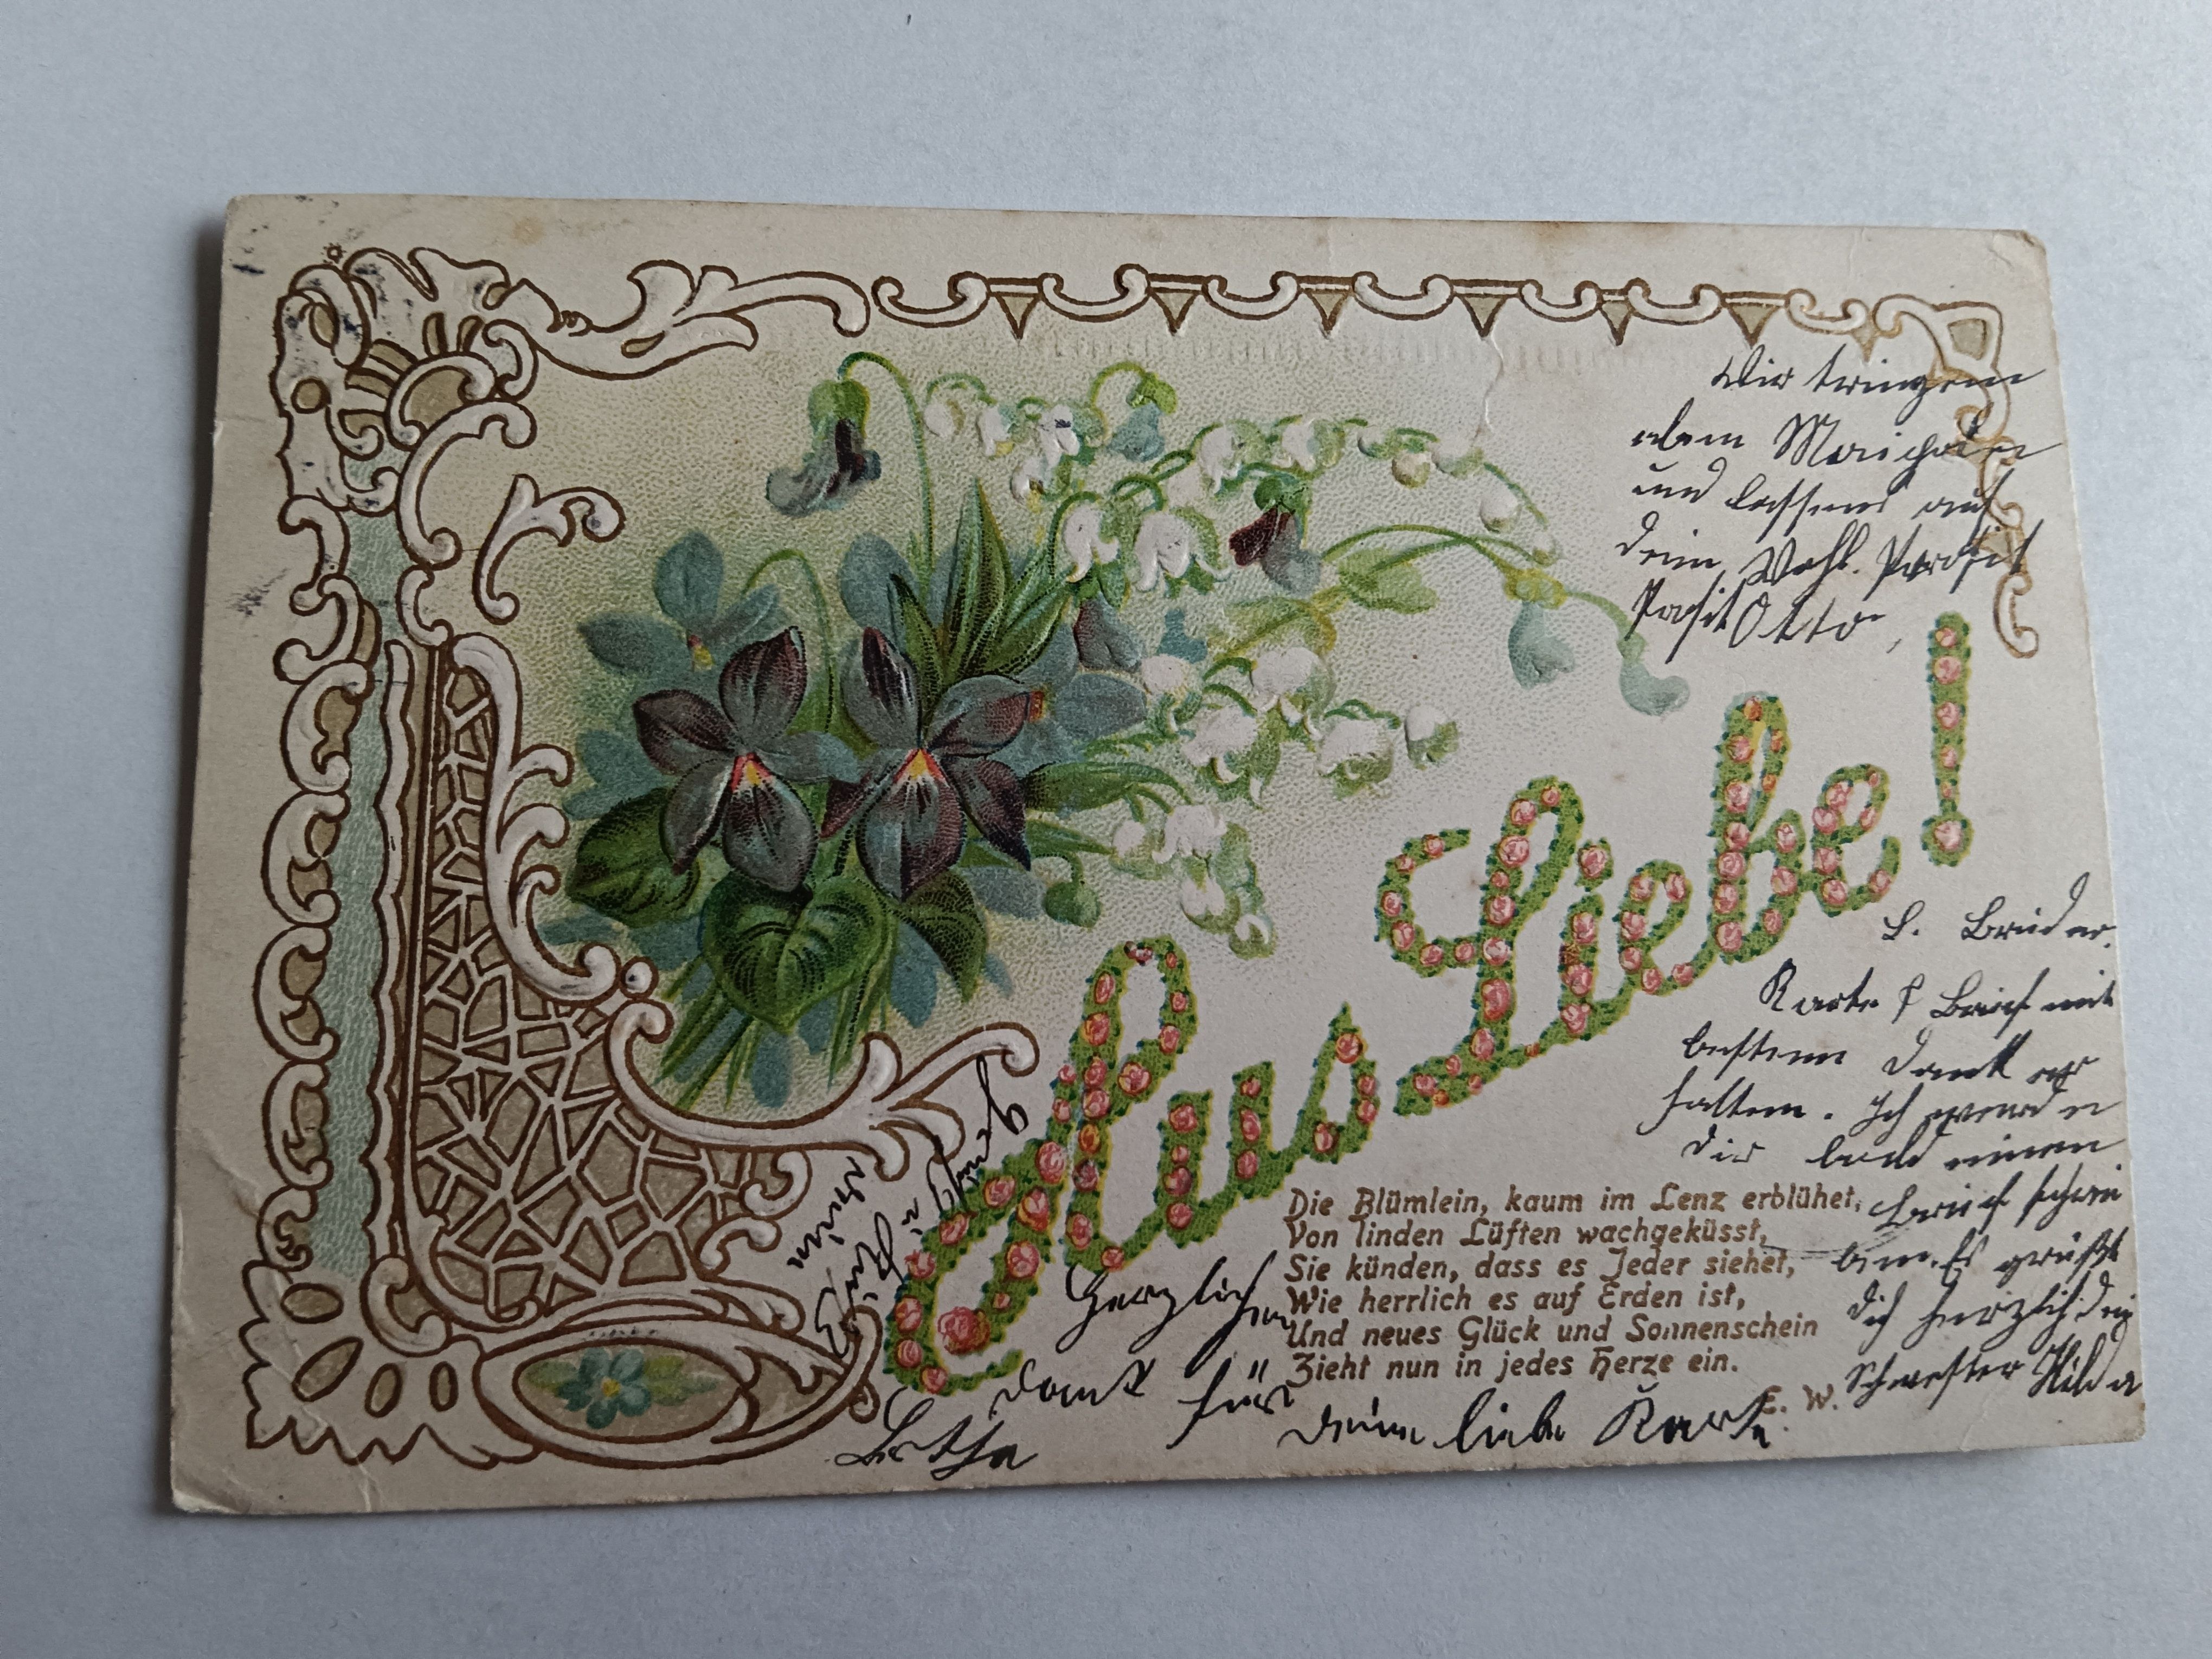 Wir tringen
eben Maibowle
und lassens auf
dein Wohl. Prosit
Prosit Otto,
Aus Liebe!
L. Bruder.
Karte & Brief mit
bestem Dank er
halten. Ich werde
dir bald einen
Brief schrei
ben. Es grüßt
dich herzlich dein
Schwester Hilda
Die Blümlein, kaum im Lenz erblühet,
Von linden Lüften wachgeküsst,
Sie künden, dass es Jeder siehet,
Wie herrlich es auf Erden ist,
Und neues Glück und Sonnenschein
Zieht nun in jedes Herze ein.
E. W.
Herzlichen
Dank für
deine liebe Karte.
Gruß